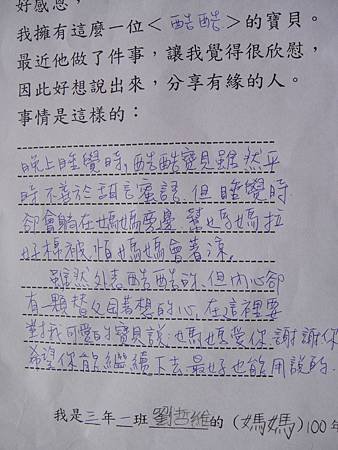 好感恩，
我擁有這麼一位＜酷酷＞的寶貝。
最近他做了件事，讓我覺得很欣慰，
因此好想說出來，分享有緣的人。
事情是這樣的：
晚上睡覺時，酷酷寶貝雖然平
時不善於甜言蜜語，但睡覺時
卻會躺在媽媽旁邊，幫媽媽拉
好棉被，怕媽媽會著涼。
雖然外表酷酷的，但內心卻
有一顆替父母著想的心，在這裡要
對我可愛的寶貝說：媽媽愛你，謝謝你
希望你能繼續下去，最好也能用說的．
我是三年一班劉哲維的（媽媽）100年